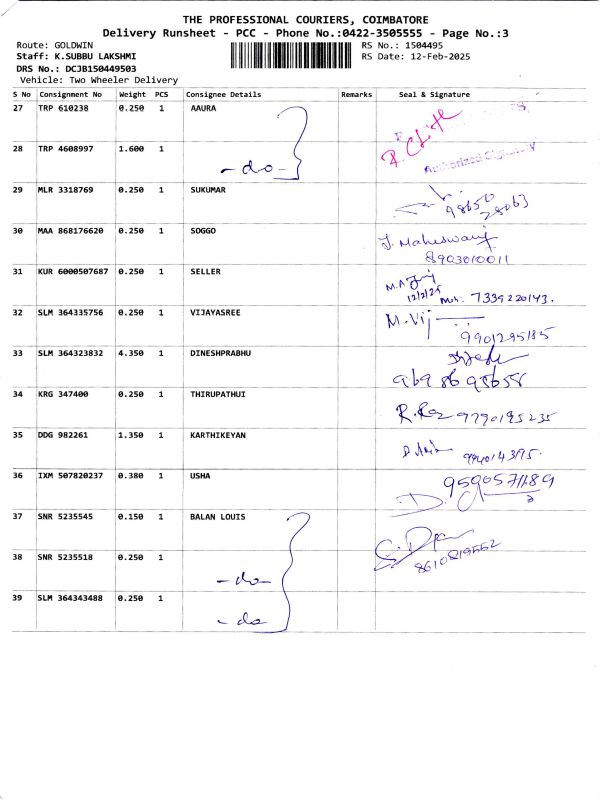 THE PROFESSIONAL COURIERS, COIMBATORE
Delivery Runsheet - PCC - Phone No.:0422-3505555 - Page No.:3
Route: GOLDWIN RS No.: 1504495
Staff: K.SUBBU LAKSHMI RS Date: 12-Feb-2025
DRS No.: DCJB150449503
Vehicle: Two Wheeler Delivery
S No Consignment No Weight PCS Consignee Details Remarks Seal & Signature
27 TRP 610238 0.250 1 AAURA
28 TRP 4608997 1.600 1 -do- Authorized Signatory
29 MLR 3318769 0.250 1 SUKUMAR 98650
28063
30 MAA 868176620 0.250 1 SOGGO J. Maheswari
8903010011
31 KUR 6000507687 0.250 1 SELLER M.A
12/2/25 Mob: 7339220143.
32 SLM 364335756 0.250 1 VIJAYASREE M. Vij
9901295185
33 SLM 364323832 4.350 1 DINESHPRABHU
9698695658
34 KRG 347400 0.250 1 THIRUPATHUI 9790195235
35 DDG 982261 1.350 1 KARTHIKEYAN
36 IXM 507820237 0.380 1 USHA
37 SNR 5235545 0.150 1 BALAN LOUIS
8610819552
38 SNR 5235518 0.250 1 -do-
39 SLM 364343488 0.250 1 -do